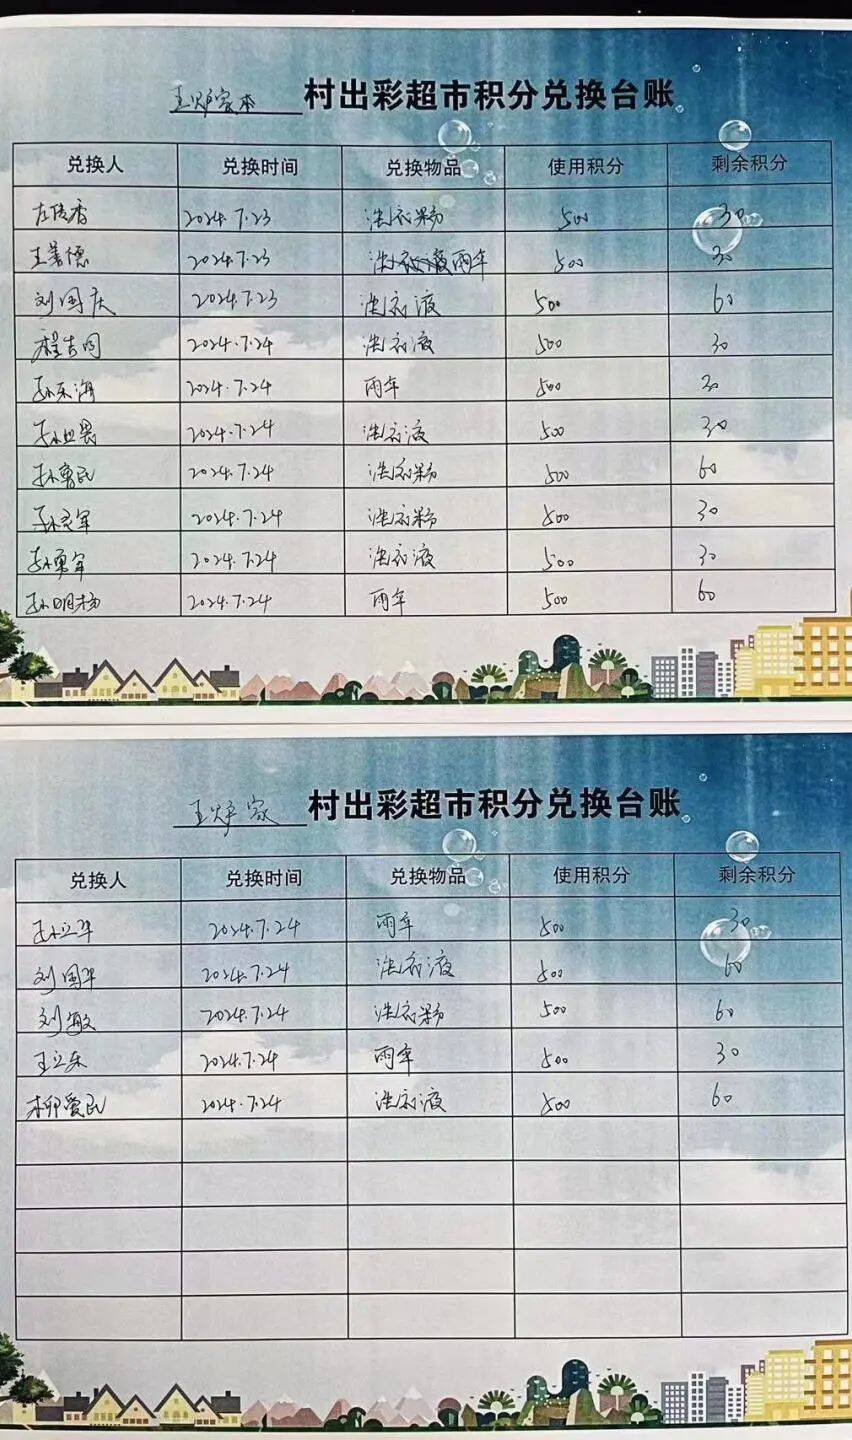 王炉家村 村出彩超市积分兑换台账
兑换人 兑换时间 兑换物品 使用积分 剩余积分
左传香 2024.7.23 洗衣粉 500 30
王善德 2024.7.23 洗衣液雨伞 500 30
刘国庆 2024.7.23 洗衣液 500 60
程吉同 2024.7.24 洗衣液 500 30
孙东海 2024.7.24 雨伞 500 30
2024.7.24 洗衣液 500 30
孙鲁民 2024.7.24 洗衣粉 500 60
孙灵军 2024.7.24 洗衣粉 500 30
孙勇军 2024.7.24 洗衣液 500 30
孙明杨 2024.7.24 雨伞 500 60
王炉家 村出彩超市积分兑换台账
兑换人 兑换时间 兑换物品 使用积分 剩余积分
孙立华 2024.7.24 雨伞 500 30
刘国华 2024.7.24 洗衣液 500 60
刘敏 2024.7.24 洗衣粉 500 60
王立东 2024.7.24 雨伞 500 30
柳爱民 2024.7.24 洗衣液 500 60